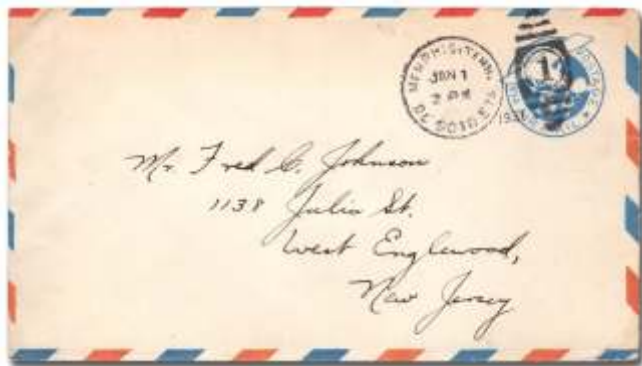 MEMPHIS, TENN.
JAN 1
2 PM
1
Mr Fred C. Johnson
1138 Julia St.
West Englewood,
New Jersey